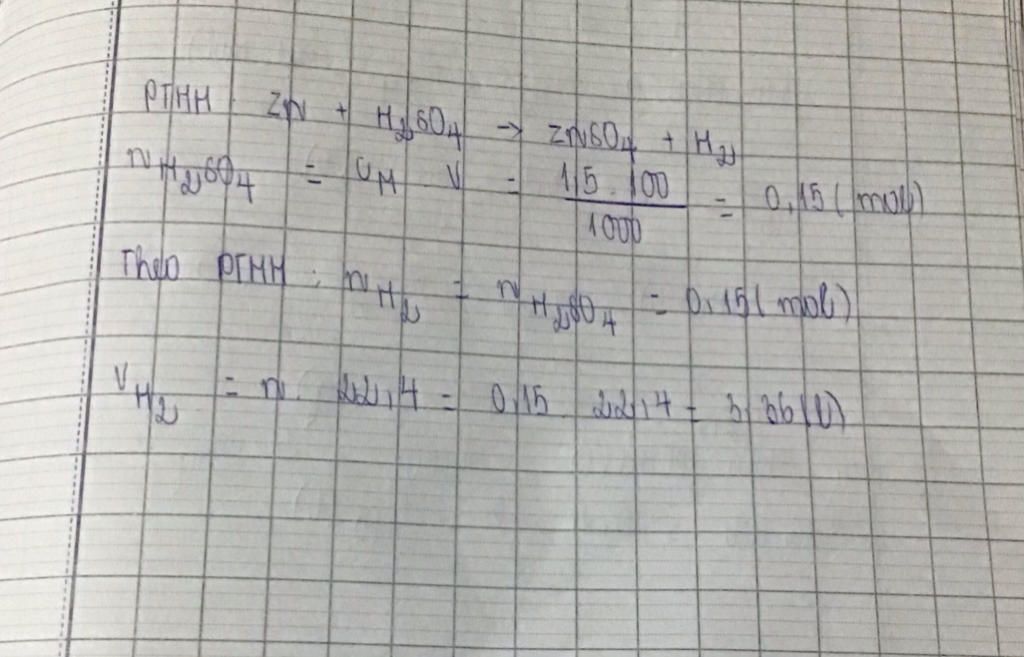 PTHH: Zn + H₂SO₄ → ZnSO₄ + H₂
nH₂SO₄ = CM . V = 1,5 . 100 / 1000 = 0,15 (mol)
Theo PTHH: nH₂ = nH₂SO₄ = 0,15 (mol)
VH₂ = n . 22,4 = 0,15 . 22,4 = 3,36 (l)